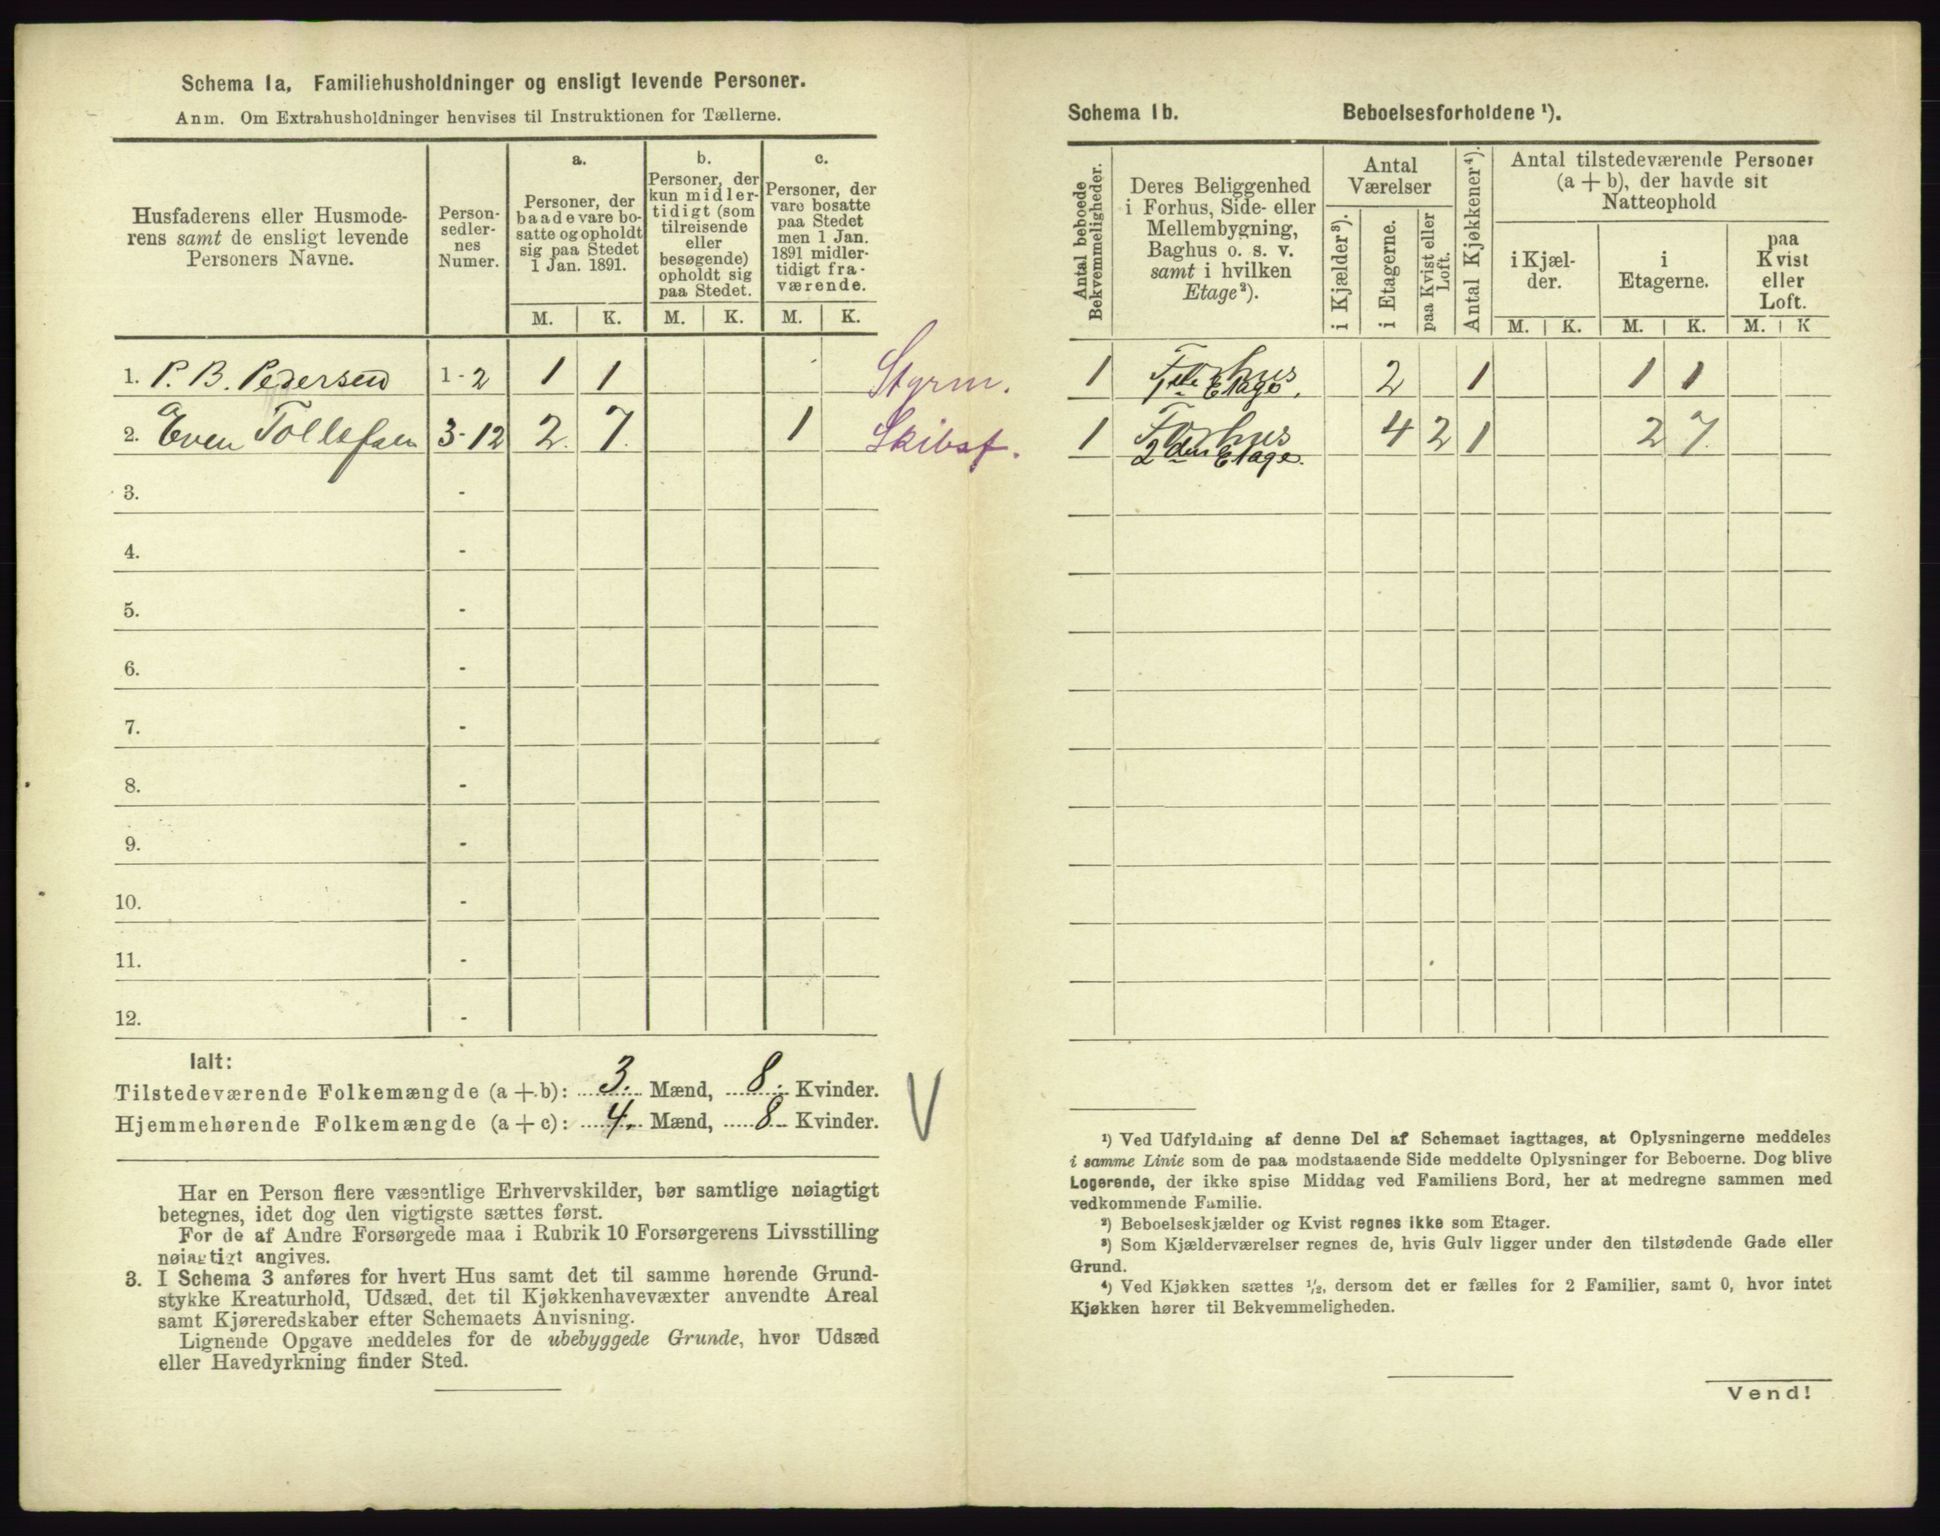 Schema 1a, Familiehusholdninger og ensligt levende Personer.
Anm. Om Extrahusholdninger henvises til Instruktionen for Tællerne.
Husfaderens eller Husmode-
rens samt de ensligt levende
Personers Navne.
Person-
sedler-
nes
Numer.
a.
Personer, der
baade vare bo-
satte og opholdt
sig paa Stedet
1 Jan. 1891.
b.
Personer, der
kun midler-
tidigt (som
tilreisende
eller
besøgende)
opholdt sig
paa Stedet.
c.
Personer, der
vare bosatte
paa Stedet
men 1 Jan.
1891 midler-
tidigt fra-
værende.
M. K. M. K. M. K.
1. P. B. Pedersen 1-2 1 1 Styrm.
2. Even Tollefsen 3-12 2. 7. 1 Skibsf.
3. -
4. -
5. -
6. -
7. -
8. -
9. -
10. -
11. -
12. -
Ialt:
Tilstedeværende Folkemængde (a + b): 3. Mænd, 8. Kvinder.
Hjemmehørende Folkemængde (a + c): 4. Mænd, 8 Kvinder.
V
Har en Person flere væsentlige Erhvervskilder, bør samtlige nøiagtigt
betegnes, idet dog den vigtigste sættes først.
For de af Andre Forsørgede maa i Rubrik 10 Forsørgerens Livsstilling
nøiagtigt angives.
3. I Schema 3 anføres for hvert Hus samt det til samme hørende Grund-
stykke Kreaturhold, Udsæd, det til Kjøkkenhavevæxter anvendte Areal
samt Kjøreredskaber efter Schemaets Anvisning.
Lignende Opgave meddeles for de ubebyggede Grunde, hvor Udsæd
eller Havedyrkning finder Sted.
Schema 1b. Beboelsesforholdene ¹).
Antal beboede
Bekvemmeligheder.
Deres Beliggenhed
i Forhus, Side- eller
Mellembygning,
Baghus o. s. v.
samt i hvilken
Etage²).
Antal
Værelser
i Kjælder³).
i Etagerne.
paa Kvist eller
Loft.
Antal Kjøkkener⁴).
Antal tilstedeværende Personer
(a + b), der havde sit
Natteophold
i Kjæl-
der.
i
Etagerne.
paa
Kvist
eller
Loft.
M. K. M. K. M. K
1 Forhus 2 1 1 1
1ste Etage.
1 Forhus 4 2 1 2 7.
2den Etage.
¹) Ved Udfyldning af denne Del af Schemaet iagttages, at Oplysningerne meddeles
i samme Linie som de paa modstaaende Side meddelte Oplysninger for Beboerne. Dog blive
Logerende, der ikke spise Middag ved Familiens Bord, her at medregne sammen med
vedkommende Familie.
²) Beboelseskjælder og Kvist regnes ikke som Etager.
³) Som Kjælderværelser regnes de, hvis Gulv ligger under den tilstødende Gade eller
Grund.
⁴) Ved Kjøkken sættes ½, dersom det er fælles for 2 Familier, samt 0, hvor intet
Kjøkken hører til Bekvemmeligheden.
Vend!